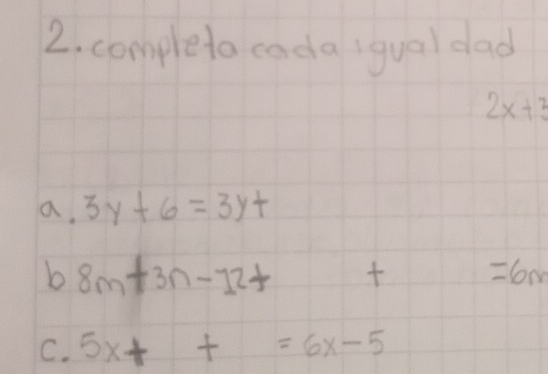 2. completa cada igualdad
2x+3
a. 3y + 6 = 3y+
b 8m+3n-12+ + =6m
c. 5x+ + = 6x-5